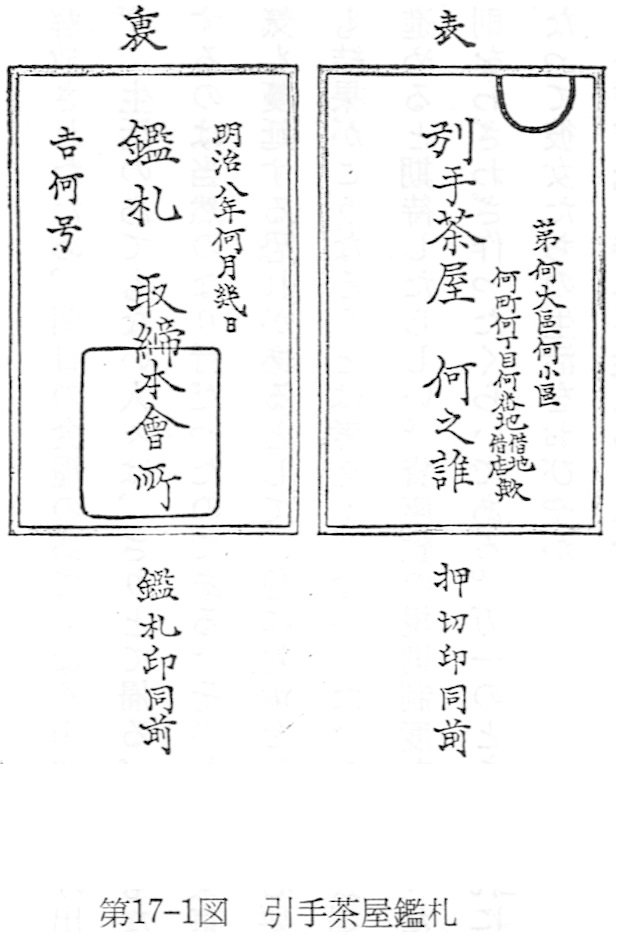 表
第何大區何小區
何町何丁目何番地借地借店歟
引手茶屋　何之誰
押切印同前
裏
明治八年何月幾日
鑑札　取締本會所
吉何号
鑑札印同前
第17-1図　引手茶屋鑑札